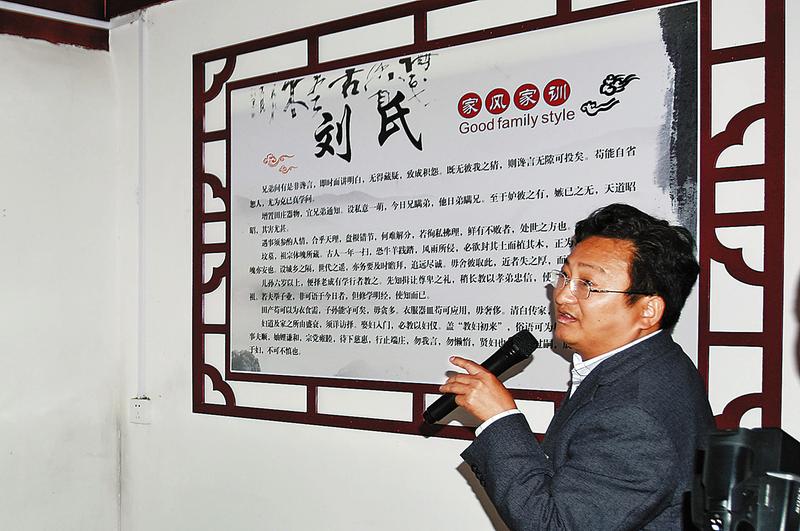 刘氏
家风家训
Good family style
兄弟间有是非谗言，即时面讲明白，无得藏疑，致成积怨。既无彼我之猜，则谗言无隙可投矣。苟能自省
恕人，尤为克己真学问。
增置田庄器物，宜兄弟通知。设私意一萌，今日兄瞒弟，他日弟瞒兄。至于妒彼之有，嫉己之无，天道昭
昭，其害尤甚。
遇事须参酌人情，合乎天理，盘根错节，何难解分，若徇私拂理，鲜有不败者，处世之方也。
坟墓，祖宗体魄所藏。古人一年一扫，恐牛羊践踏，风雨所侵，必欲封其土而植其木，正为
魄亦安也。设城乡之隔，世代之遥，亦务要及时瞻拜，追远尽诚。毋舍彼取此，近者失之厚，
儿孙六岁以上，便择老成有学行者教之。先知揖让尊卑之礼，稍长教以孝弟忠信，使
祖。若夫举子业，非可语于今日者，但修学明经，使知而已。
田产苟可以为衣食需，子孙能守可矣，毋贪多。衣服器皿苟可应用，毋奢侈。清白传家
妇道及家之所由盛衰，须详访择。娶妇入门，必教以妇仪。盖“教妇初来”，俗语可为
事夫顺，妯娌谦和，宗党雍睦，待下慈惠，行止端庄，勿我言，勿懒惰，贤妇也
于妇，不可不慎也。